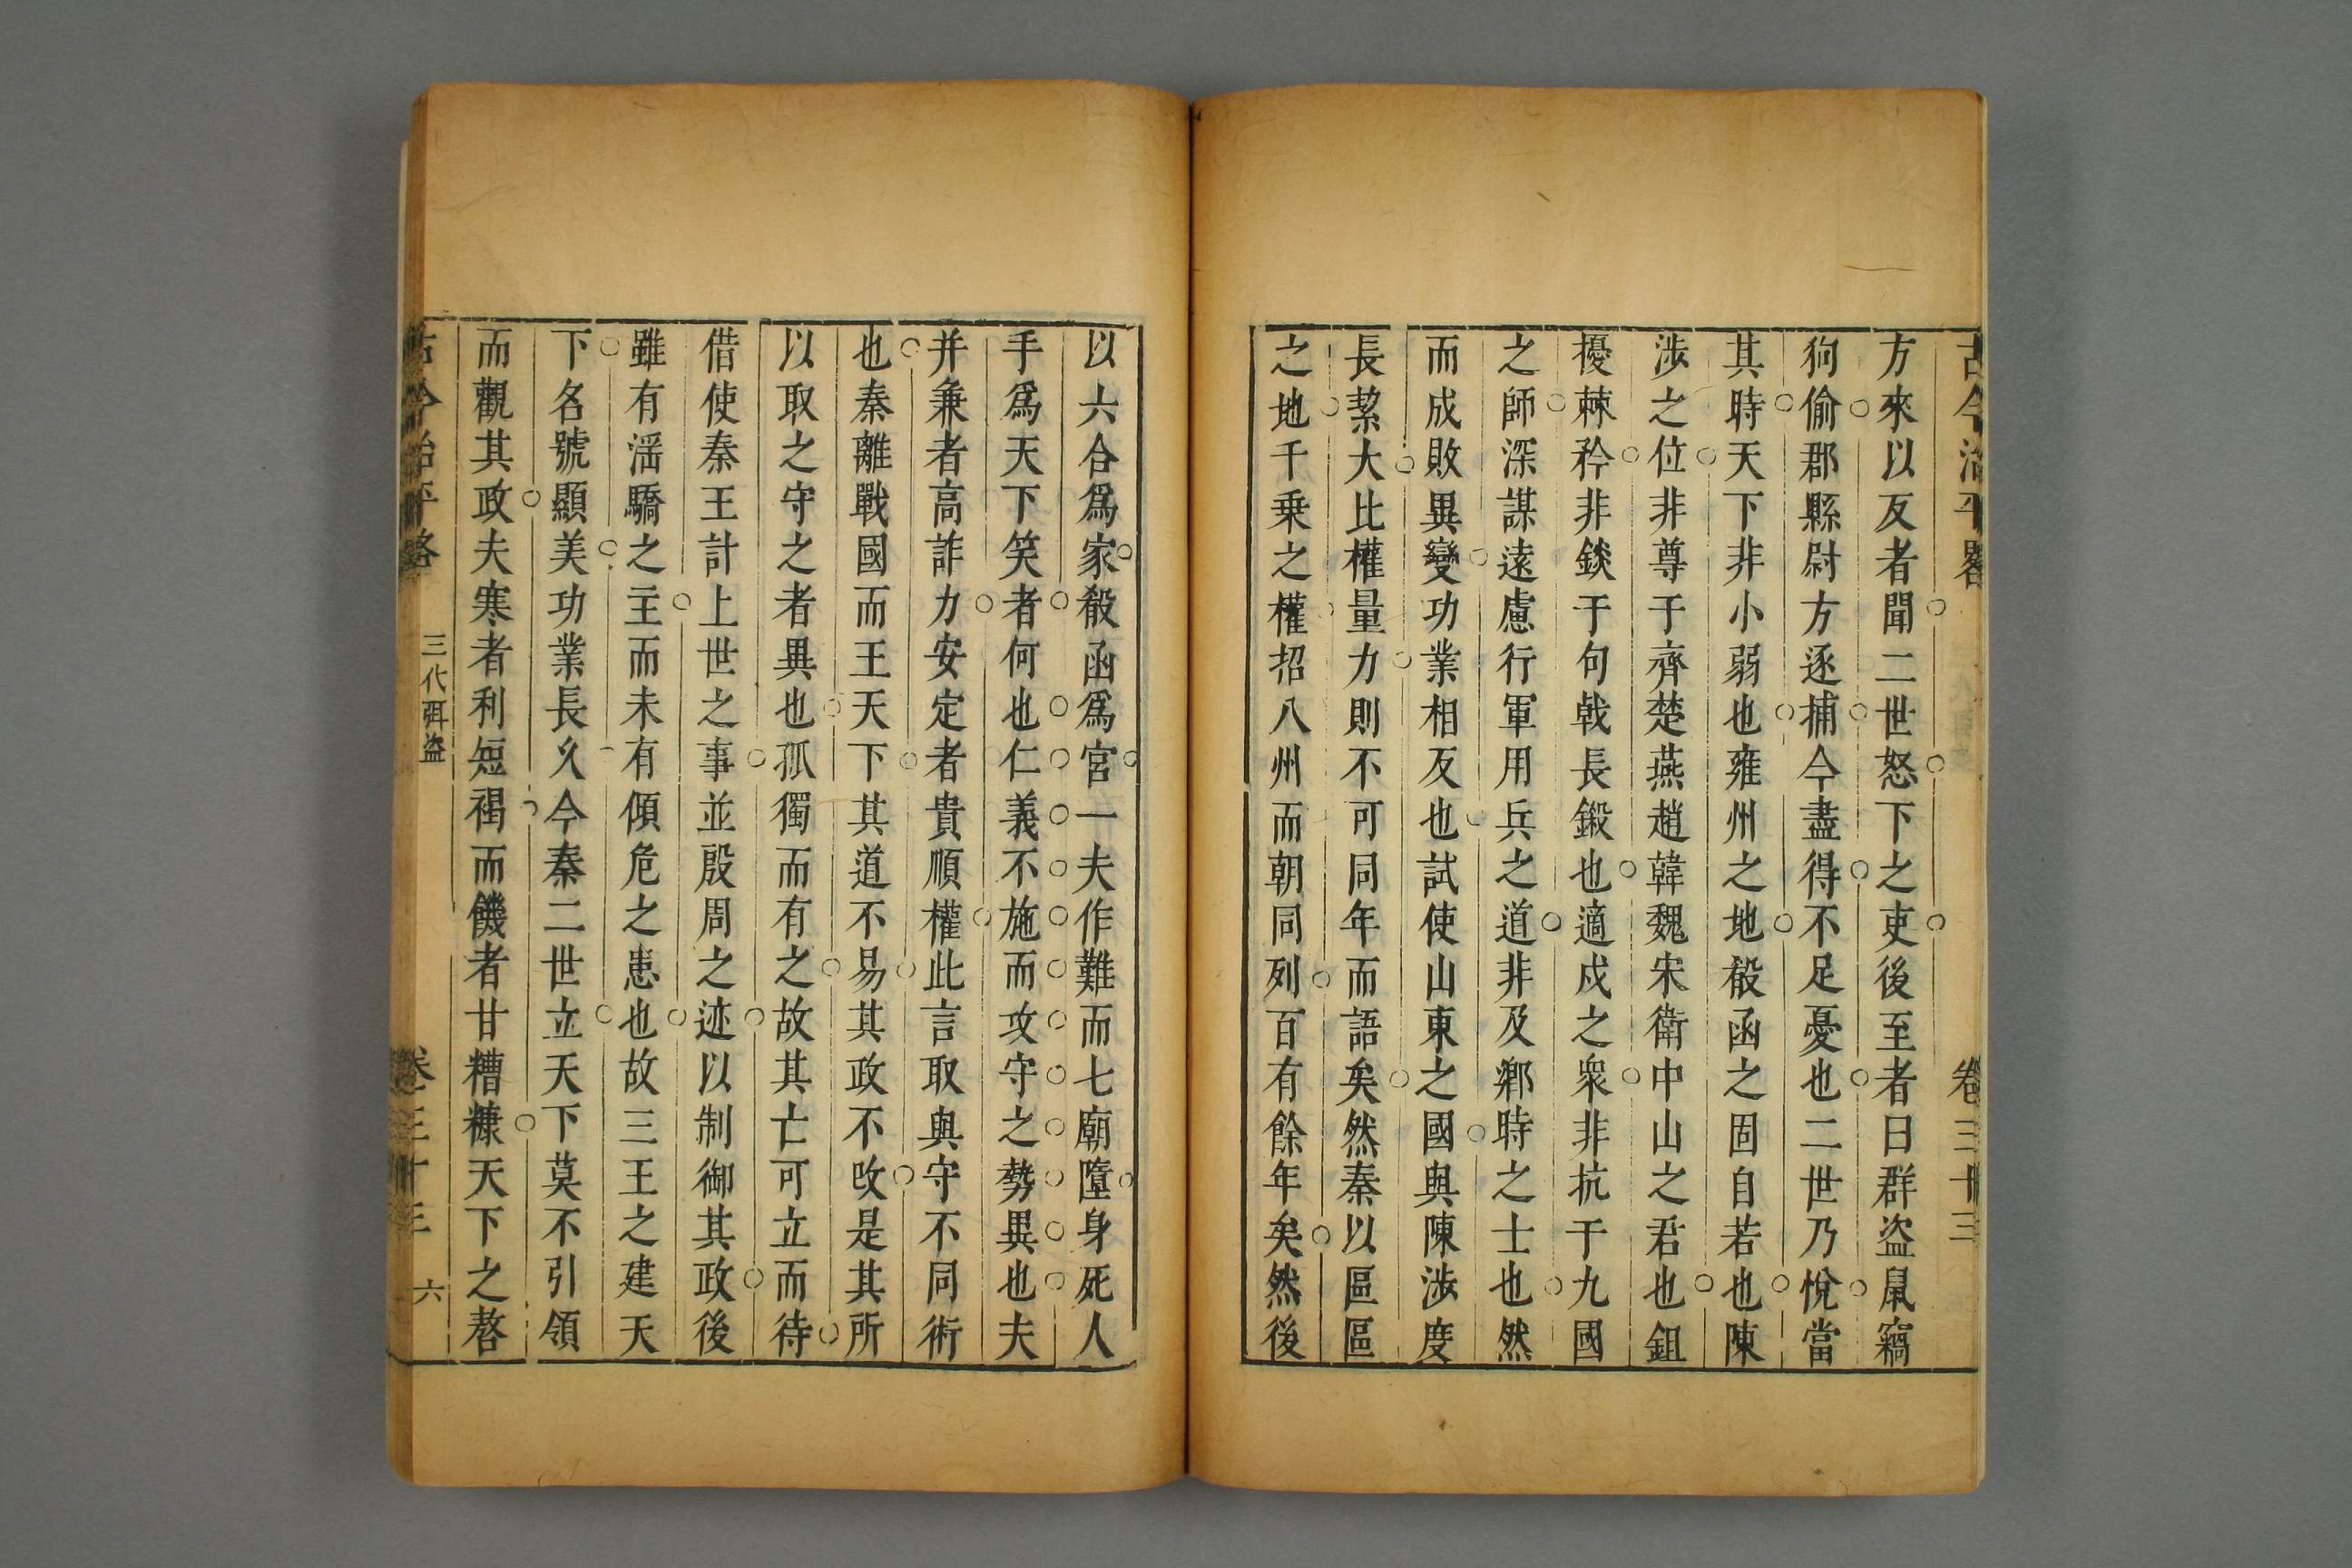 古今治平畧 卷三十三
方來以反者聞二世怒下之吏後至者曰群盜鼠竊
狗偷郡縣尉方逐捕今盡得不足憂也二世乃悅當
其時天下非小弱也雍州之地殽函之固自若也陳
涉之位非尊于齊楚燕趙韓魏宋衛中山之君也鉏
擾棘矜非錟于句戟長鎩也適戍之衆非抗于九國
之師深謀遠慮行軍用兵之道非及鄉時之士也然
而成敗異變功業相反也試使山東之國與陳涉度
長絜大比權量力則不可同年而語矣然秦以區區
之地千乗之權招八州而朝同列百有餘年矣然後
以六合爲家殽函爲宮一夫作難而七廟墮身死人
手爲天下笑者何也仁義不施而攻守之勢異也夫
并兼者高詐力安定者貴順權此言取與守不同術
也秦離戰國而王天下其道不易其政不改是其所
以取之守之者異也孤獨而有之故其亡可立而待
借使秦王計上世之事並殷周之迹以制御其政後
雖有滛驕之主而未有傾危之患也故三王之建天
下名號顯美功業長久今秦二世立天下莫不引領
而觀其政夫寒者利短褐而饑者甘糟糠天下之嗸
古今治平畧 三代弭盜 卷三十三 六